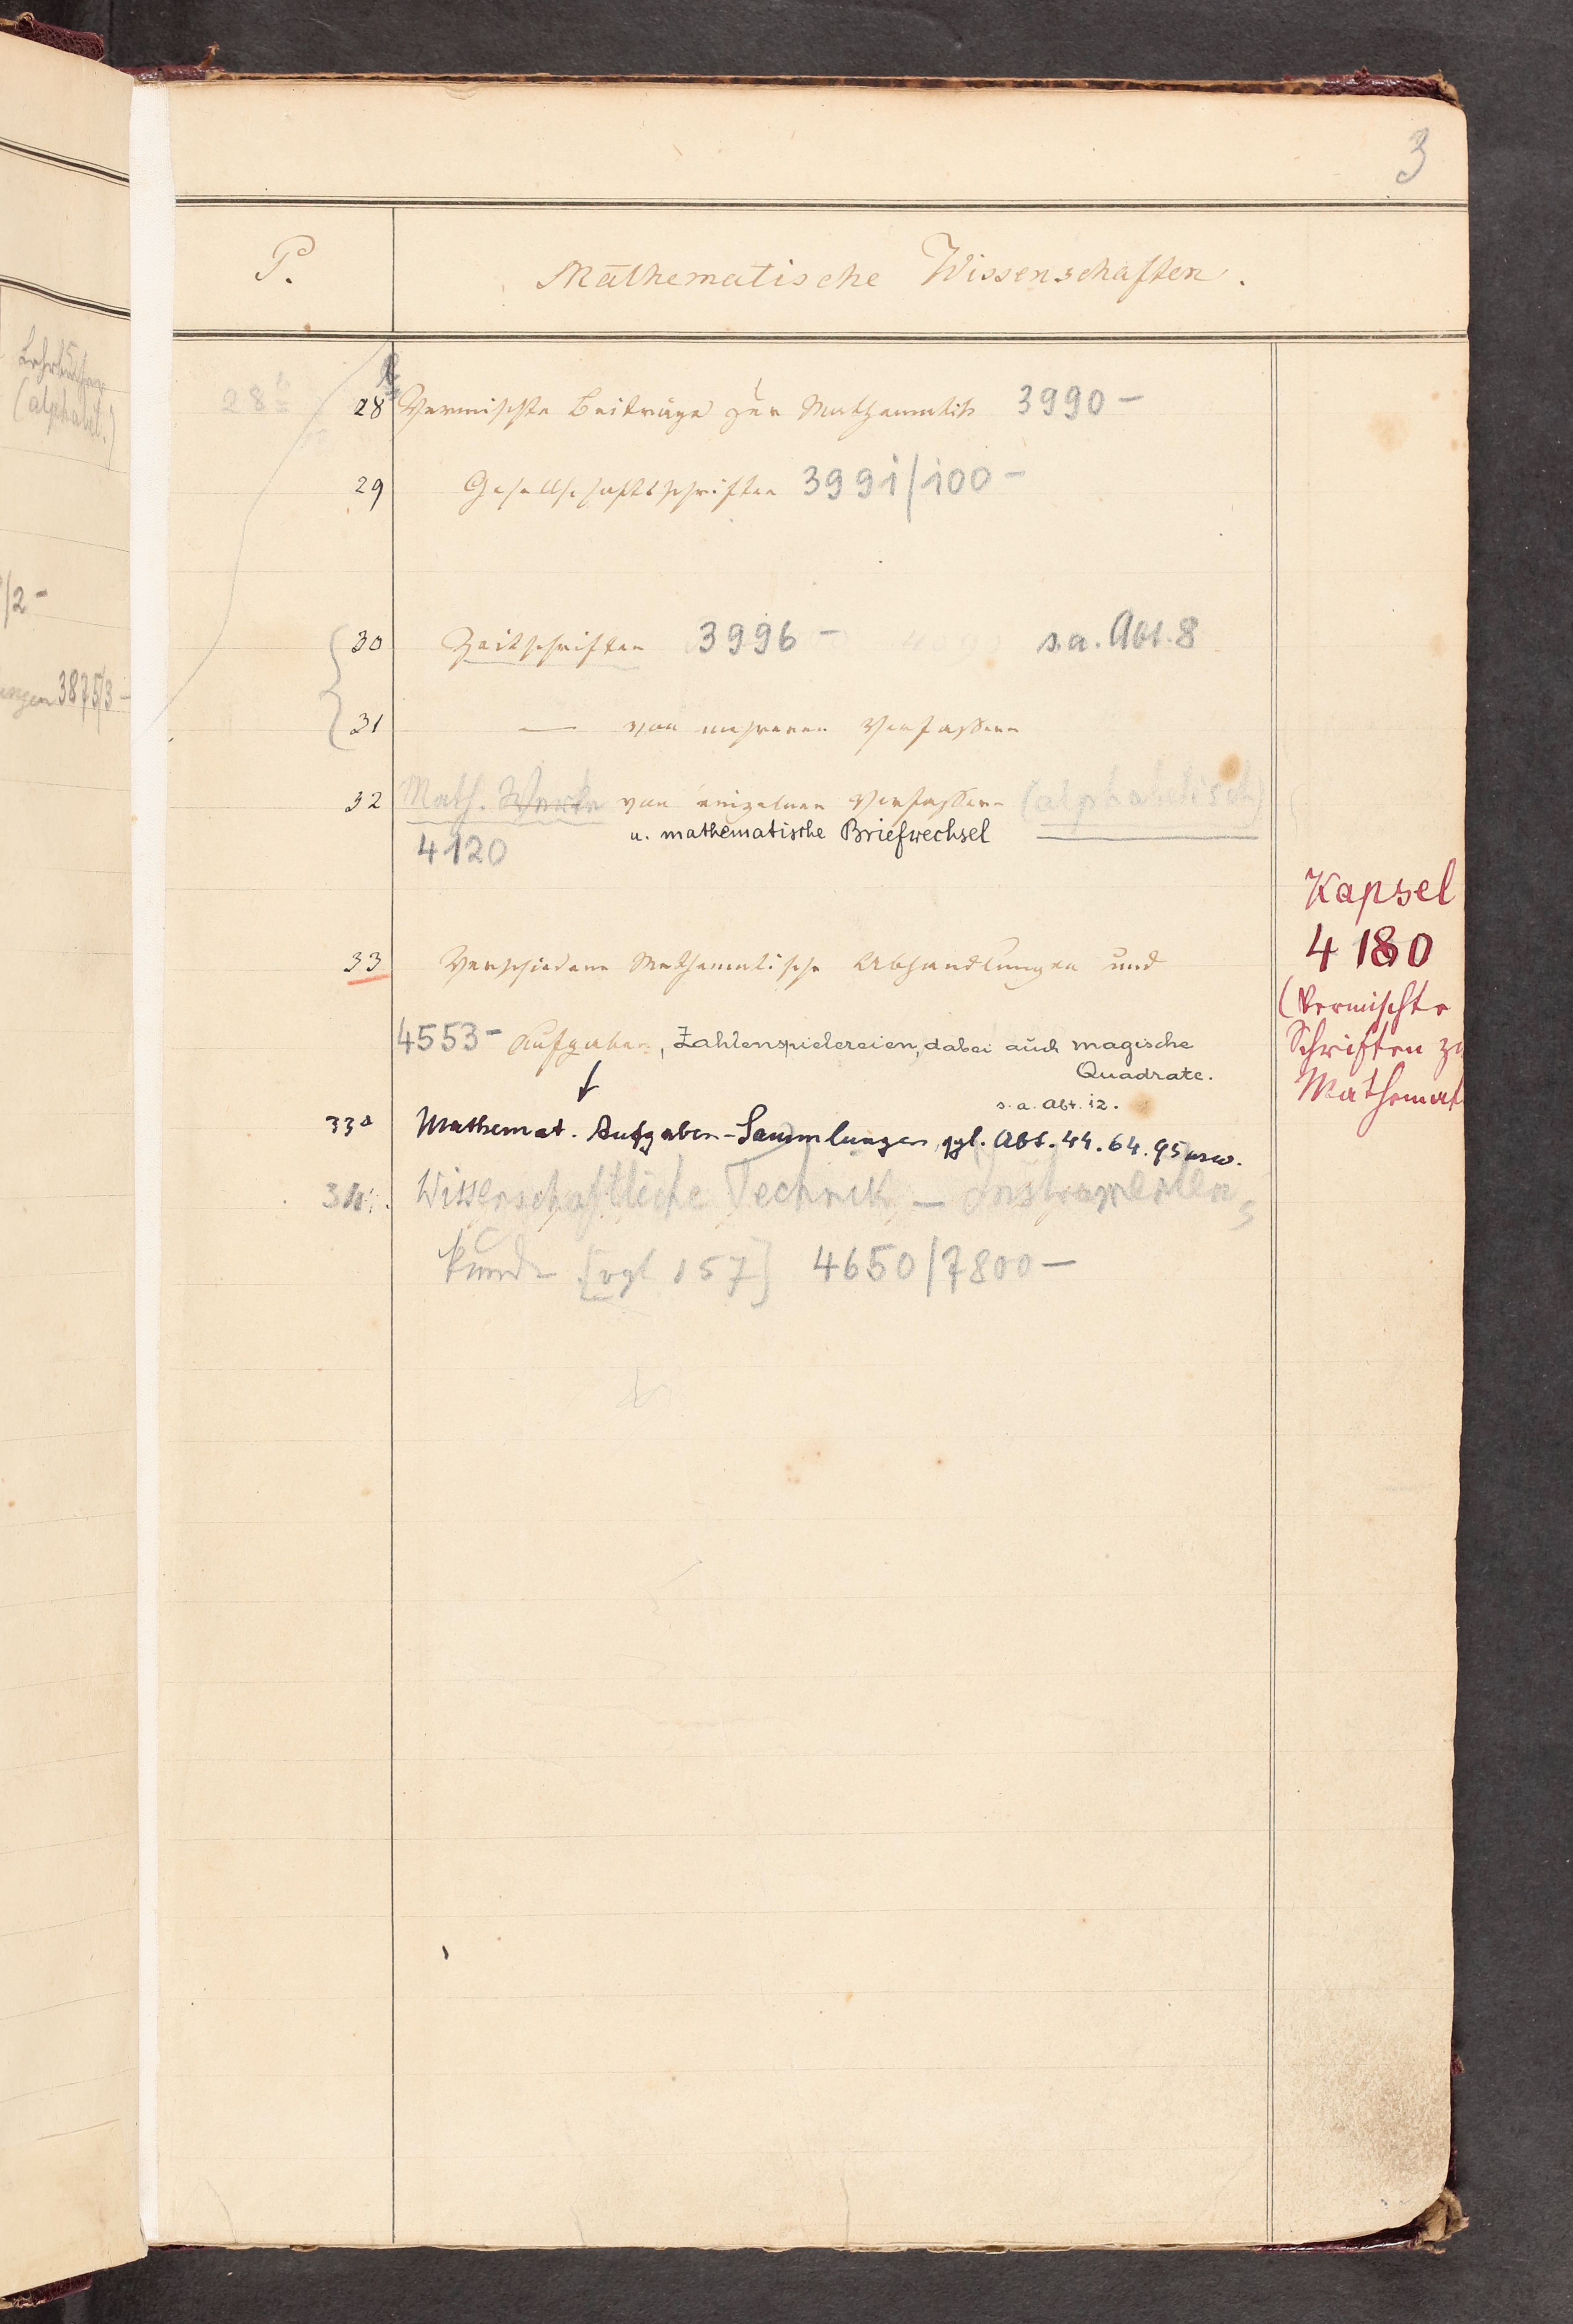 3
P. Mathematische Wissenschaften.
Lehrbücher
(alphabet.)
28 b
28 Vermischte Beiträge zur Mathematik 3990 –
29 Gesellschaftsschriften 3991/100 –
/2 –
30 Zeitschriften 3996 – s. a. Abt. 8
ungen 3875/3 –
31 — von mehreren Verfassern
32 Math. Werke von einzelnen Verfassern (alphabetisch)
u. mathematische Briefwechsel
4120
Kapsel
4180
(Vermischte
Schriften zu
Mathemat
33 Verschiedene Mathematische Abhandlungen und
4553 – Aufgaben, Zahlenspielereien, dabei auch magische
Quadrate.
s. a. Abt. 12.
33a Mathemat. Aufgaben-Sammlungen vgl. Abt. 44. 64. 95 usw.
34. Wissenschaftliche Technik – Instrumenten
kunde [vgl 157] 4650/7800 –